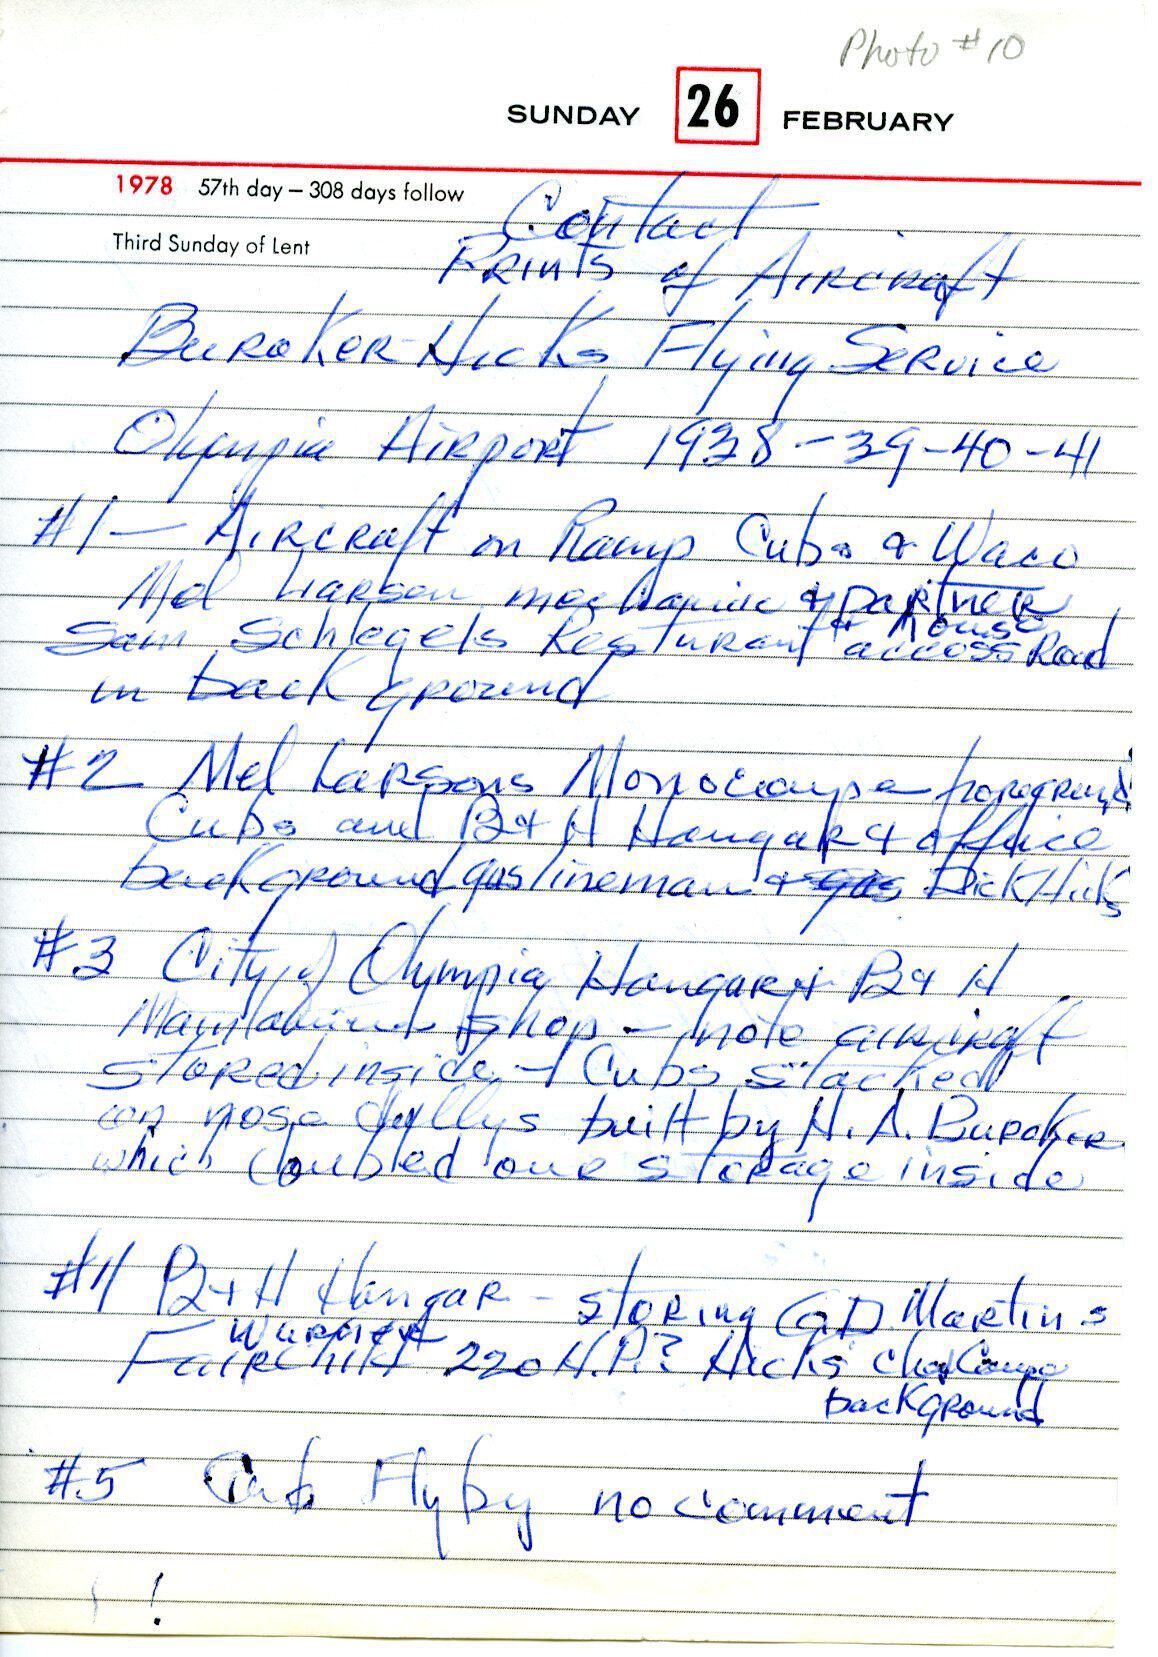 Photo #10
SUNDAY 26 FEBRUARY
1978 57th day – 308 days follow
Third Sunday of Lent
Contact
Prints of Aircraft
Buroker-Hicks Flying Service
Olympia Airport 1938-39-40-41
#1 – Aircraft on Ramp Cubs & Waco
Mel Larson mechanic & partner
Sam Schlegels Resturant + House accoss Road
in background
#2 Mel Larsons Monocoupe foreground
Cubs and B+H Hangar & office
background gas lineman & Dick Hicks
#3 City of Olympia Hangar + B+H
shop – note aircraft
stored inside – Cubs stacked
on nose dollys built by H. A. Buroker
which doubled our storage inside
#4 B+H Hangar – storing G.D. Martins
Warner
Fairchild 220 H.P.? Hicks Coupe
background
#5 Cub Flyby no comment